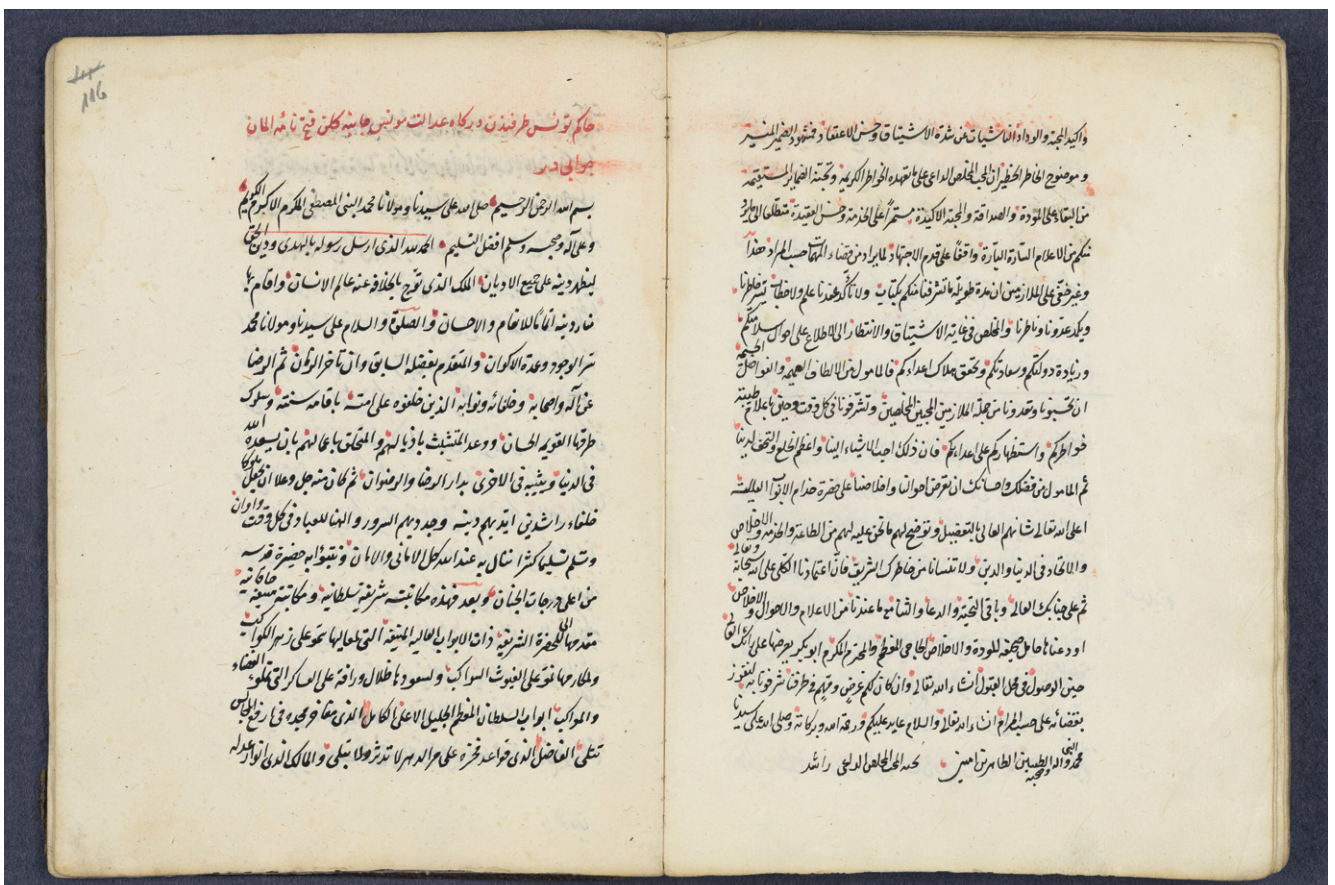 واكيد المحبة والوداد الناشيات عن شدة الاشتياق وحسن الاعتقاد فمشهود الضمير المنير
وموضوح الخاطر الخطير ان المحب المخلص الداعي على ما تعهده الخواطر الكريمة وتجنه الضماير المستقيمة
من البقاء على المودة والصداقة والمحبة الاكيدة مستمرا على الخدمة وحسن العقيدة متطلعا الى ما يرد
منكم من الاعلام السارة البارة واقفا على قدم الاجتهاد لما يراد من قضاء المهمات حسب المراد هذا
وغير خفي على الملازمين ان مدة طويلة ما تشرفنا منكم بكتاب ولا تأكد عندنا علم ولا خطاب يسر خاطرنا
ويكد عدونا وناظرنا والمخلص في غاية الاشتياق والانتظار الى الاطلاع على احوال سلامتكم
وزيادة دولتكم وسعادتكم وتحقق هلاك اعداءكم فالمامول من الالطاف العميمة والفواضل الجسيمة
ان تحسبونا وتعدونا من جملة الملازمين المحبين المخلصين وتشرفونا في كل وقت وحين باعلام طيبة
خواطركم واستظهاركم على اعداءكم فان ذلك احب الاشياء الينا واعظم الخلع والتحف لدينا
ثم المامول من فضلك واحسانك ان تعرض احوالنا واخلاصنا على حضرة خدام الابواب العلية
اعلى الله تعالى شانهم العالي بالتفصيل وتوضح لهم ما نحن عليه لهم من الطاعة والخدمة والاخلاص
والاتحاد في الدنيا والدين ولا تنسانا من خاطرك الشريف فان اعتمادنا الكلي على الله سبحانه وتعالى
ثم على جنابك العالي وباقي التحية والدعا والثنا مع ما عندنا من الاعلام والاحوال والاخلاص
اودعناها حامل صحيفة المودة والاخلاص الحاجي المعظم والمحترم المكرم ابو بكر يعرضها على رائك العالي
حين الوصول في محل القبول انشاء الله تعالى وان كان لكم غرض ومهم في طرفنا شرفونا به لنفوز
بقضائه على حسب المرام انشاء الله تعالى والسلام عايد عليكم ورحمة الله وبركاته وصلى الله على سيدنا
محمد النبي واله الطيبين وصحبه الطاهرين امين محبه المحب المخلص الداعي راشد
116
حاكم تونس طرفندن دركاه عدالت مونس جانبنه كلن فتح نامه المان
جوابى در
بسم الله الرحمن الرحيم صلى الله على سيدنا ومولانا محمد النبي المصطفى المكرم الاكبر الكريم
وعلى آله وصحبه وسلم افضل التسليم الحمد لله الذى ارسل رسوله بالهدى ودين الحق
ليظهر دينه على جميع الاديان الملك الذى توج بالخلافة عنه عالم الانسان واقام بها
منار دينه اتماما للانعام والاحسان والصلوة والسلام على سيدنا ومولانا محمد
سر الوجود وعمدة الاكوان والمتقدم بفضله السابق وان تاخر الزمان ثم الرضا
عن آله واصحابه وخلفائه ونوابه الذين خلفوه على امته باقامة سنته وسلوك
طرقها القويمة الحسان ووعد المتشبث باذيالهم والمتخلق باعمالهم بان يسعده الله
فى الدنيا ويثيبه فى الاخرى بدار الرضا والرضوان ثم كان منه جل وعلا ان جعل ملوكا
خلفاء راشدين ايد بهم دينه وجدد بهم السرور والهنا للعباد فى كل وقت واوان
وسلم تسليما كثيرا ننال به عند الله كل الامانى والامان ونتبوأ به حضرة قدسه
من اعلى درجات الجنان وبعد فهذه مكاتبة شريفة سلطانية ومكاتبة منيفة خاقانية
مقدمها الى الحضرة الشريفة ذات الابواب العالية المنيفة التى بمعاليها سمو على زهر الكواكب
ومكارمها تنوء على الغيوث السواكب ولسعودها ظلال ورافة على العساكر التى تملؤ الفضاء
والمواكب ابواب السلطان المعظم الجليل الاعلى الكامل الذى مفاخر مجده فى ارفع المجالس
تتلى الفاضل الذى قواعد فخره على مر الدهر لا تدثر ولا تبلى والمالك الذى انوار عدله